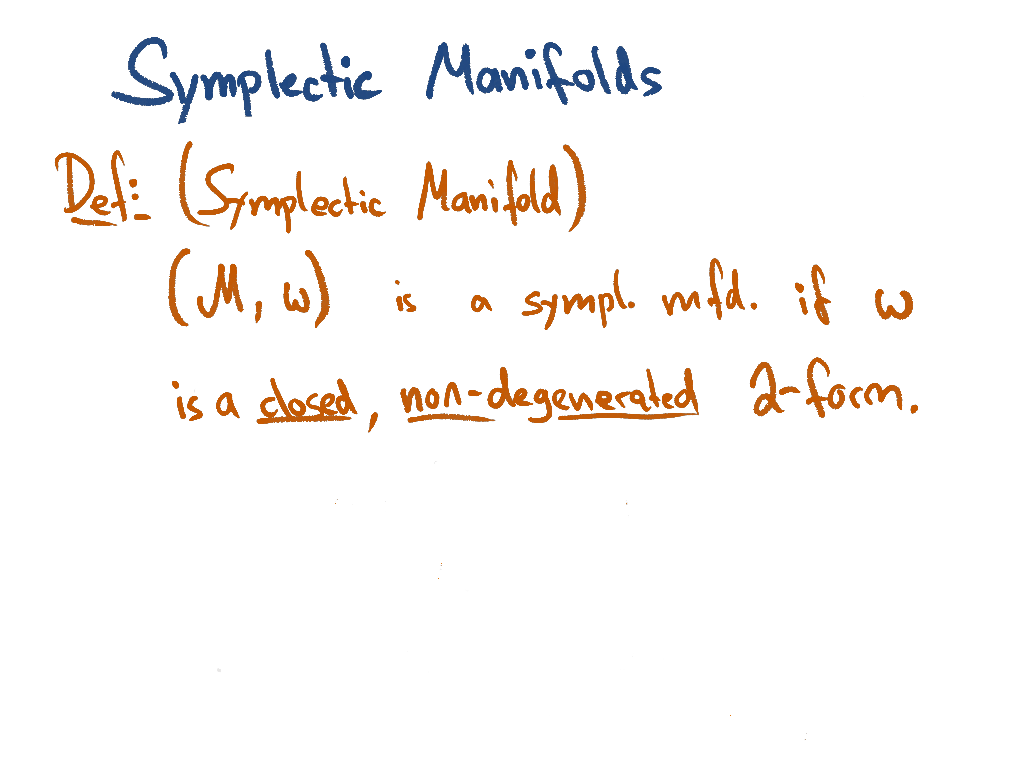 Symplectic Manifolds
Def: (Symplectic Manifold)
(M, ω) is a sympl. mfd. if ω
is a closed, non-degenerated 2-form.